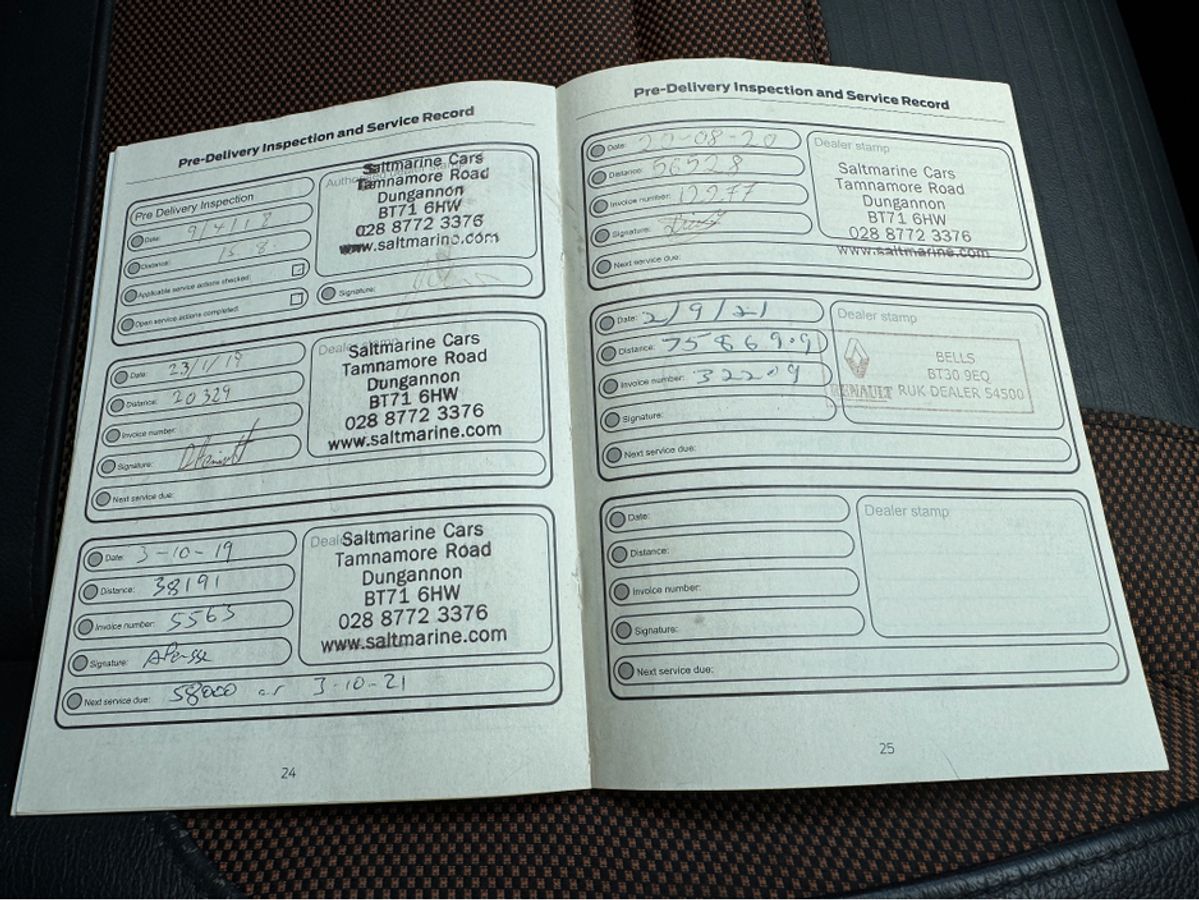 Pre-Delivery Inspection and Service Record
Pre Delivery Inspection
Date: 9/4/18
Distance: 15.8
Applicable service actions checked:
Open service actions completed:
Saltmarine Cars
Tamnamore Road
Dungannon
BT71 6HW
028 8772 3376
www.saltmarine.com
Signature:
Date: 23/1/19
Distance: 20329
Invoice number:
Signature:
Next service due:
Dealer stamp
Saltmarine Cars
Tamnamore Road
Dungannon
BT71 6HW
028 8772 3376
www.saltmarine.com
Date: 3-10-19
Distance: 38191
Invoice number: 5563
Signature:
Next service due: 58000 or 3-10-21
Saltmarine Cars
Tamnamore Road
Dungannon
BT71 6HW
028 8772 3376
www.saltmarine.com
24
Pre-Delivery Inspection and Service Record
Date: 20-08-20
Distance: 56528
Invoice number: 12277
Signature:
Next service due:
Dealer stamp
Saltmarine Cars
Tamnamore Road
Dungannon
BT71 6HW
028 8772 3376
www.saltmarine.com
Date: 2/9/21
Distance: 75869.9
Invoice number: 32209
Signature:
Next service due:
Dealer stamp
BELLS
BT30 9EQ
RENAULT RUK DEALER 54500
Date:
Distance:
Invoice number:
Signature:
Next service due:
Dealer stamp
25